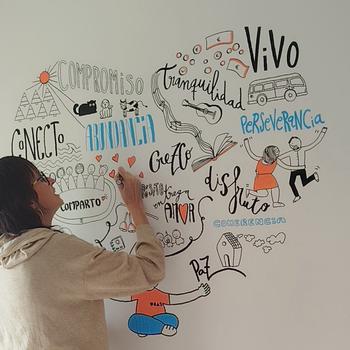 COMPROMISO
tranquilidad
VIVO
CONECTO
PERSEVERANCIA
CREZCO
disfruto
COMPARTO
AMOR
COHERENCIA
PAZ